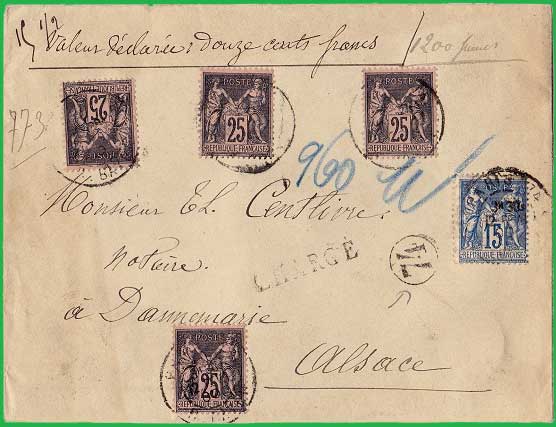 15 1/2
Valeur déclarée : douze cents francs
1200 francs
POSTE 25 REPUBLIQUE FRANÇAISE
POSTE 25 REPUBLIQUE FRANÇAISE
POSTE 25 REPUBLIQUE FRANÇAISE
773
960 M
Monsieur Th. Centlivre
15 REPUBLIQUE FRANÇAISE
Notaire.
CHARGÉ
à Dannemarie
POSTE 25 REPUBLIQUE FRANÇAISE
Alsace